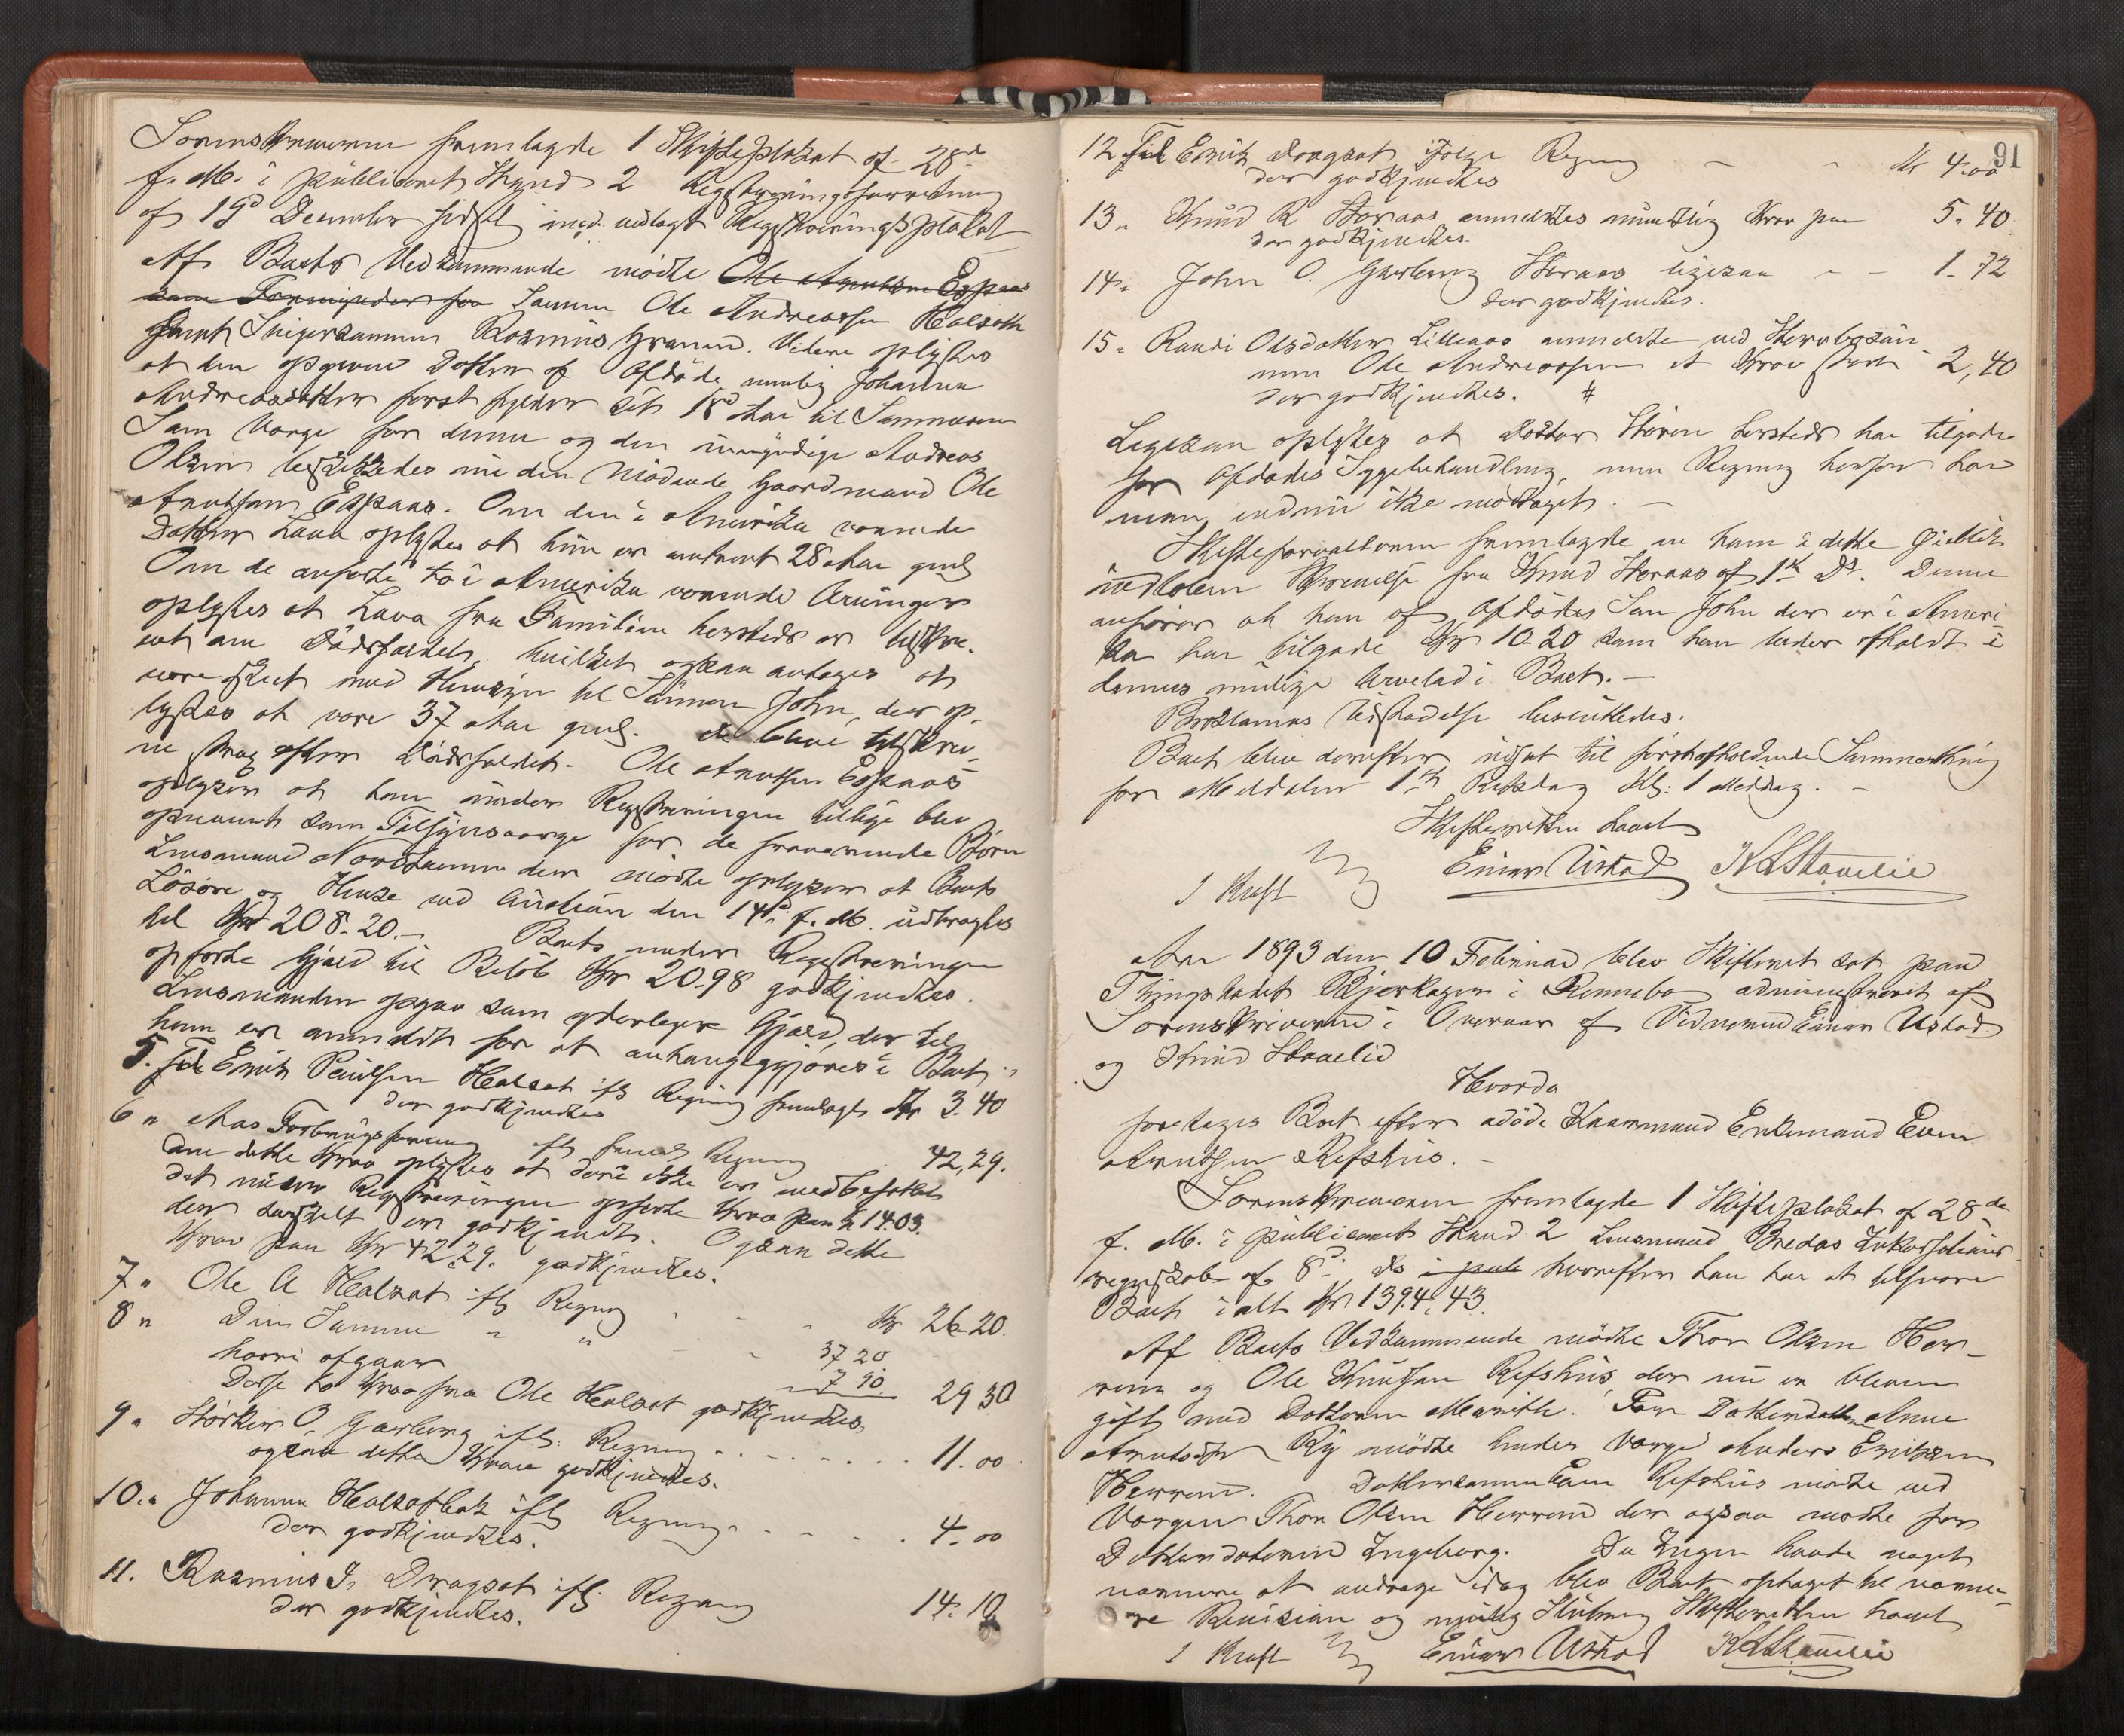 Sorenskriveren fremlagde 1 Skifteplakat af 28de
f. M. i publiceret Stand 2 Registreringsforretning
af 19d December sidstl med vedlagt Registreringsplakat
Af Boets Vedkommende mødte Ole Arnutsen Espaas
som Formynder for Sønnen Ole Andreassen Halsatt
samt Svigersønnen Rasmus Granmo. Videre oplystes
at den opgivne Datter af Afdøde, nemlig Johanna
Andreasdatter først fylder sit 18d Aar til Sommeren
Som Værge for denne og den umyndige Andreas
Olsen beskikkedes nu den mødende Gaardmand Ole
Arnutsen Espaas. Om den i Amerika værende
Datter Lava oplystes at hun er omtrent 28 Aar gml
Om de anførte to i Amerika værende Arvinger
oplystes at Lava fra Familien hersteds er tilskre-
vet om Dødsfaldet, hvilket ogsaa antages at
være skeet med Hensyn til Sønnen John, der op-
lystes at være 37 Aar gml. de bleve tilskrev-
ne strax efter Dødsfaldet. Ole Arnutsen Espaas
oplyser at han under Registreringen tillige blev
opnævnt som Tilsynsværge for de fraværende Børn
Lensmand der mødte oplyser at Boets
Løsøre og Huse ved Auction den 14d f. M. udbragtes
til Kr 208.20.- Boets under Registreringen
opførte Gjæld til Beløb Kr 20.98 godkjendtes.
Lensmanden opgav som yderligere Gjæld, der til
ham er anmeldt for at anhængiggjøres i Boet:
5. Fil Erik Paulsen Halsat ifl Regning fremlagt Kr 3.40
der godkjendtes
6 " Aas Forbrugsforening ifl freml Regning 42,29.
Om dette Krav oplystes at deri ikke er medbefattet
det under Registreringen opførte Krav paa K 14.03.
der særskilt er godkjendt. Ogsaa dette
Krav paa Kr 42.29. godkjendtes.
7 " Ole A Halsat ifl Regning Kr 26-20.
8 " Den Samme " " 37 20
hvori afgaar 7 90 29 30
Disse to Krav fra Ole Halsat godkjendtes,
9 " Størker O. Garberg ifl. Regning 11.00
ogsaa dette Krav godkjendtes.
10. " Johanna Halsatbak ifl Regning 4.00
der godkjendtes.
11. Rasmus J. Dragsat ifl. Regning 14.10
der godkjendtes.
91
12 Fil Erik Dragsat ifølge Regning Kr 4.00
der godkjendtes
13 " Knud R Storaas anmeldtes mundtlig Krav paa 5.40
der godkjendtes.
14 " John O. Garberg Storaas ligesaa - - 1.72
der godkjendtes.
15 " Randi Olsdatter Lilleaas anmeldte ved
Ole Andreassen et Krav stort 2,40
der godkjendtes. #
Ligesaa oplystes at Doktor hersteds har tilgode
for Afdødes Sygebehandling, men Regning herfor har
man endnu ikke modtaget. -
Skifteforvalteren fremlagde en ham i dette Øieblik
indløben Skrivelse fra Knud Storaas af 1ste Ds. Denne
anfører at han af Afdødes Søn John der er i Ameri
ka har tilgode Kr 10.20 som han beder afholdt i
dennes mulige Arvelod i Boet. -
Proklamas Udstedelse besluttedes.
Boet blev derefter udsat til førstafholdende Sammenkomst
for Meldalen 1ste Retsdag Kl: 1 Middag. -
Skifteretten hævet
J Kraft Einar Ustad K L Stavelie
Aar 1893 den 10 Februar blev Skifteret sat paa
Thingstedet Bjerkager i Rennebo administreret af
Sorenskriveren i Overvær af Vidnerne Einar Ustad
og Knud Stavelie
Hvorda
foretages Boet efter adøde Enkemand Even
Arnutsen Refshus. -
Sorenskriveren fremlagde 1 Skifteplakat af 28de
f. M. i publiceret Stand 2 Lensmand Bredes Inkassations-
regnskab af 8d ds hvorefter han har at tilsvare
Boet ialt Kr 1394.43.
Af Boets Vedkommende mødte Thor Olsen Her-
rem og Ole Knutsen Refshus der nu er bleven
gift med Datteren Marith. For Datterdatter Anne
Arnutsdtr Ry mødte hendes Værge Anders Eriksen
Herrem. Dattersønnen Even Refshus mødte ved
Værgen Thor Olsen Herrem der ogsaa mødte for
Datterdatteren Ingeborg. Da Ingen havde noget
nærmere at andrage idag blev Boet optaget til nærme-
re Revision og mulig Slutning Skifteretten hævet
J Kraft Einar Ustad K L Stavelie